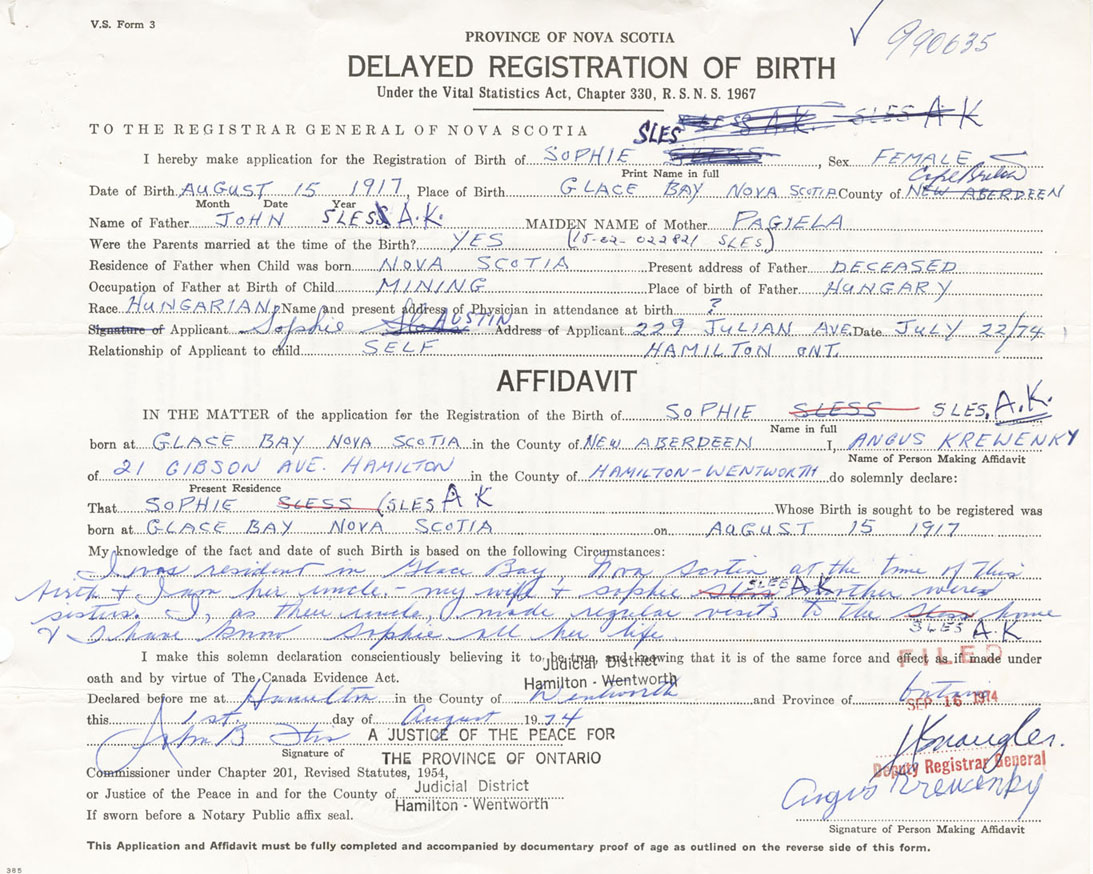 V.S. Form 3
990635
PROVINCE OF NOVA SCOTIA
DELAYED REGISTRATION OF BIRTH
Under the Vital Statistics Act, Chapter 330, R.S.N.S. 1967
TO THE REGISTRAR GENERAL OF NOVA SCOTIA SLES SLESS A.K. SLES A K
I hereby make application for the Registration of Birth of SOPHIE , Sex FEMALE
Print Name in full
Cape Breton
Date of Birth AUGUST 15 1917, Place of Birth GLACE BAY NOVA SCOTIA County of NEW ABERDEEN
Month Date Year
Name of Father JOHN SLES A.K. MAIDEN NAME of Mother PAGIELA
Were the Parents married at the time of the Birth? YES (15-02-022821 SLES)
Residence of Father when Child was born NOVA SCOTIA Present address of Father DECEASED
Occupation of Father at Birth of Child MINING Place of birth of Father HUNGARY
Race HUNGARIAN Name and present address of Physician in attendance at birth ?
Signature of Applicant Sophie AUSTIN Address of Applicant 229 JULIAN AVE. Date JULY 22/74
Relationship of Applicant to child SELF HAMILTON ONT.
AFFIDAVIT
IN THE MATTER of the application for the Registration of the Birth of SOPHIE SLESS SLES. A.K.
Name in full
born at GLACE BAY NOVA SCOTIA in the County of NEW ABERDEEN I, ANGUS KREWENKY
Name of Person Making Affidavit
of 21 GIBSON AVE. HAMILTON in the County of HAMILTON-WENTWORTH do solemnly declare:
Present Residence
That SOPHIE SLESS (SLES A K Whose Birth is sought to be registered was
born at GLACE BAY NOVA SCOTIA on AUGUST 15 1917
My knowledge of the fact and date of such Birth is based on the following Circumstances:
I was resident in Glace Bay, Nova Scotia at the time of this
birth & I am her uncle. - my wife & sophie SLES A K mother were
sisters. I, as their uncle, made regular visits to the Sless home
& I have know Sophie all her life SLES A.K
I make this solemn declaration conscientiously believing it to be true, and knowing that it is of the same force and effect as if made under
Judicial District
FILED
oath and by virtue of The Canada Evidence Act.
Hamilton - Wentworth
Declared before me at Hamilton in the County of Wentworth and Province of Ontario
SEP 16 1974
this 1st. day of August 1974
A JUSTICE OF THE PEACE FOR
Signature of THE PROVINCE OF ONTARIO
Deputy Registrar General
Commissioner under Chapter 201, Revised Statutes, 1954,
or Justice of the Peace in and for the County of Judicial District
Hamilton - Wentworth
Angus Krewenky
If sworn before a Notary Public affix seal.
Signature of Person Making Affidavit
This Application and Affidavit must be fully completed and accompanied by documentary proof of age as outlined on the reverse side of this form.
385